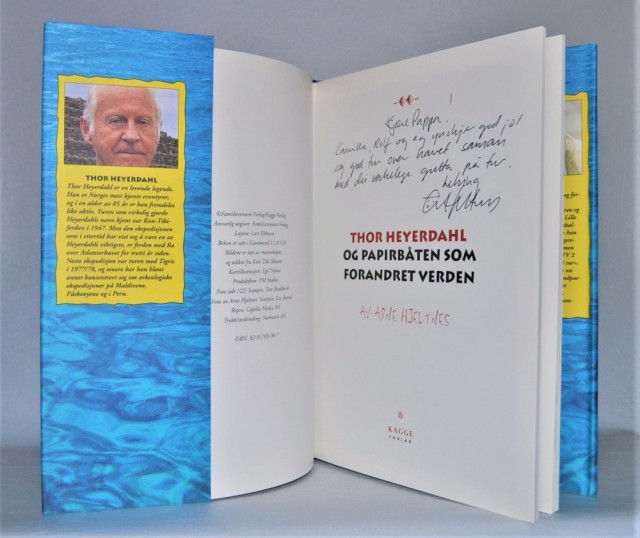 THOR HEYERDAHL
Thor Heyerdahl er en levende legende.
Han er Norges mest kjente eventyrer,
og i en alder av 85 år er han fremdeles
like aktiv. Turen som virkelig gjorde
Heyerdahls navn kjent var Kon-Tiki-
ferden i 1947. Men den ekspedisjonen
som i ettertid har vist seg å være en av
Heyerdahls viktigste, er ferden med Ra
over Atlanterhavet for tretti år siden.
Neste ekspedisjon var turen med Tigris
i 1977/78, og senere har han blant
annet konsentrert seg om arkeologiske
ekspedisjoner på Maldivene,
Påskeøyene og i Peru.
©Familievennen Forlag/Kagge Forlag
Ansvarlig utgiver: Familievennen Forlag
Layout: Lars Ebbesen
Boken er satt i Garamond
Bildene er satt av
og utlånt fra Kon-Tiki Museet
Kartillustrasjon: Egil Nyhus
Produksjon: PM Studio
Foto side 122: Scanpix, Tom
Foto av Arne Hjeltnes: Scanpix,
Repro: Capella Media AS
Trykk/innbinding: Nørhaven AS
ISBN: 82-91769-98-7
Kjære Pappa!
Camilla, Leif og eg ynskjer god jol
og god tur over havet saman
med dei verkelege gutta på tur.
THOR HEYERDAHL
OG PAPIRBÅTEN SOM
FORANDRET VERDEN
AV ARNE HJELTNES
KAGGE
FORLAG